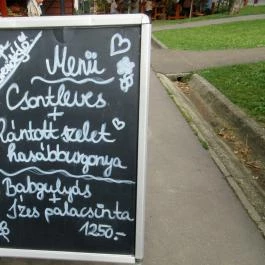 Menü
Csontleves
+
Rántott szelet
hasábburgonya
Babgulyás
+
Ízes palacsinta
1250.-